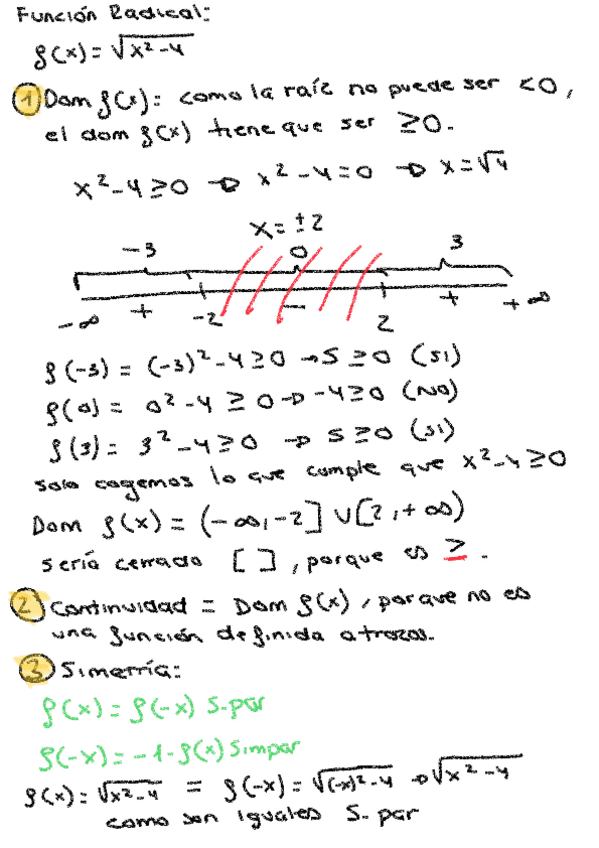 Función Radical:
f(x)= √x²-4
1 Dom f(x): como la raíz no puede ser <0,
el dom f(x) tiene que ser ≥0.
x²-4≥0 → x²-4=0 → x=√4
x=±2
-3 0 3
-∞ + -2 - 2 + +∞
f(-3) = (-3)²-4≥0 → 5≥0 (si)
f(0)= 0²-4 ≥ 0 → -4≥0 (No)
f(3)= 3²-4≥0 → 5≥0 (si)
solo cogemos lo que cumple que x²-4≥0
Dom f(x) = (-∞,-2] ∪ [2,+∞)
sería cerrado [ ], porque es ≥.
2 Continuidad = Dom f(x), porque no es
una función definida a trozos.
3 Simetría:
f(x)= f(-x) S.par
f(-x)= -1·f(x) S.impar
f(x)= √x²-4 = f(-x)= √(-x)²-4 → √x²-4
como son iguales S. par